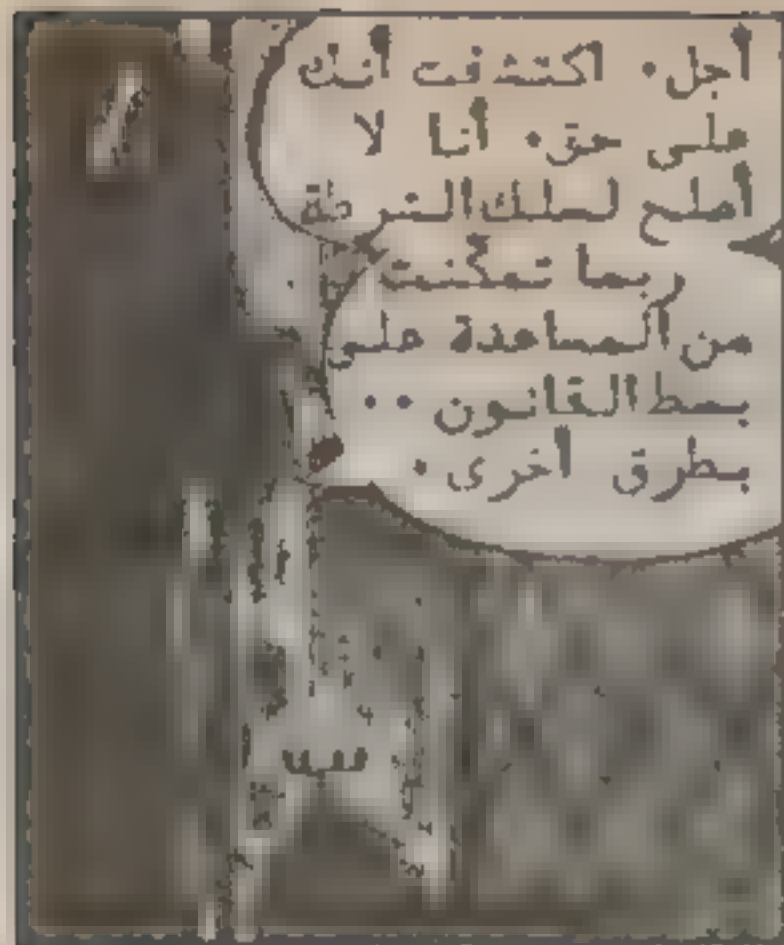 أجل. اكتشفت أنك
على حق. أنا لا
أصلح لسلك الشرطة
ربما تمكّنت
من المساعدة على
بسط القانون ..
بطرق أخرى.